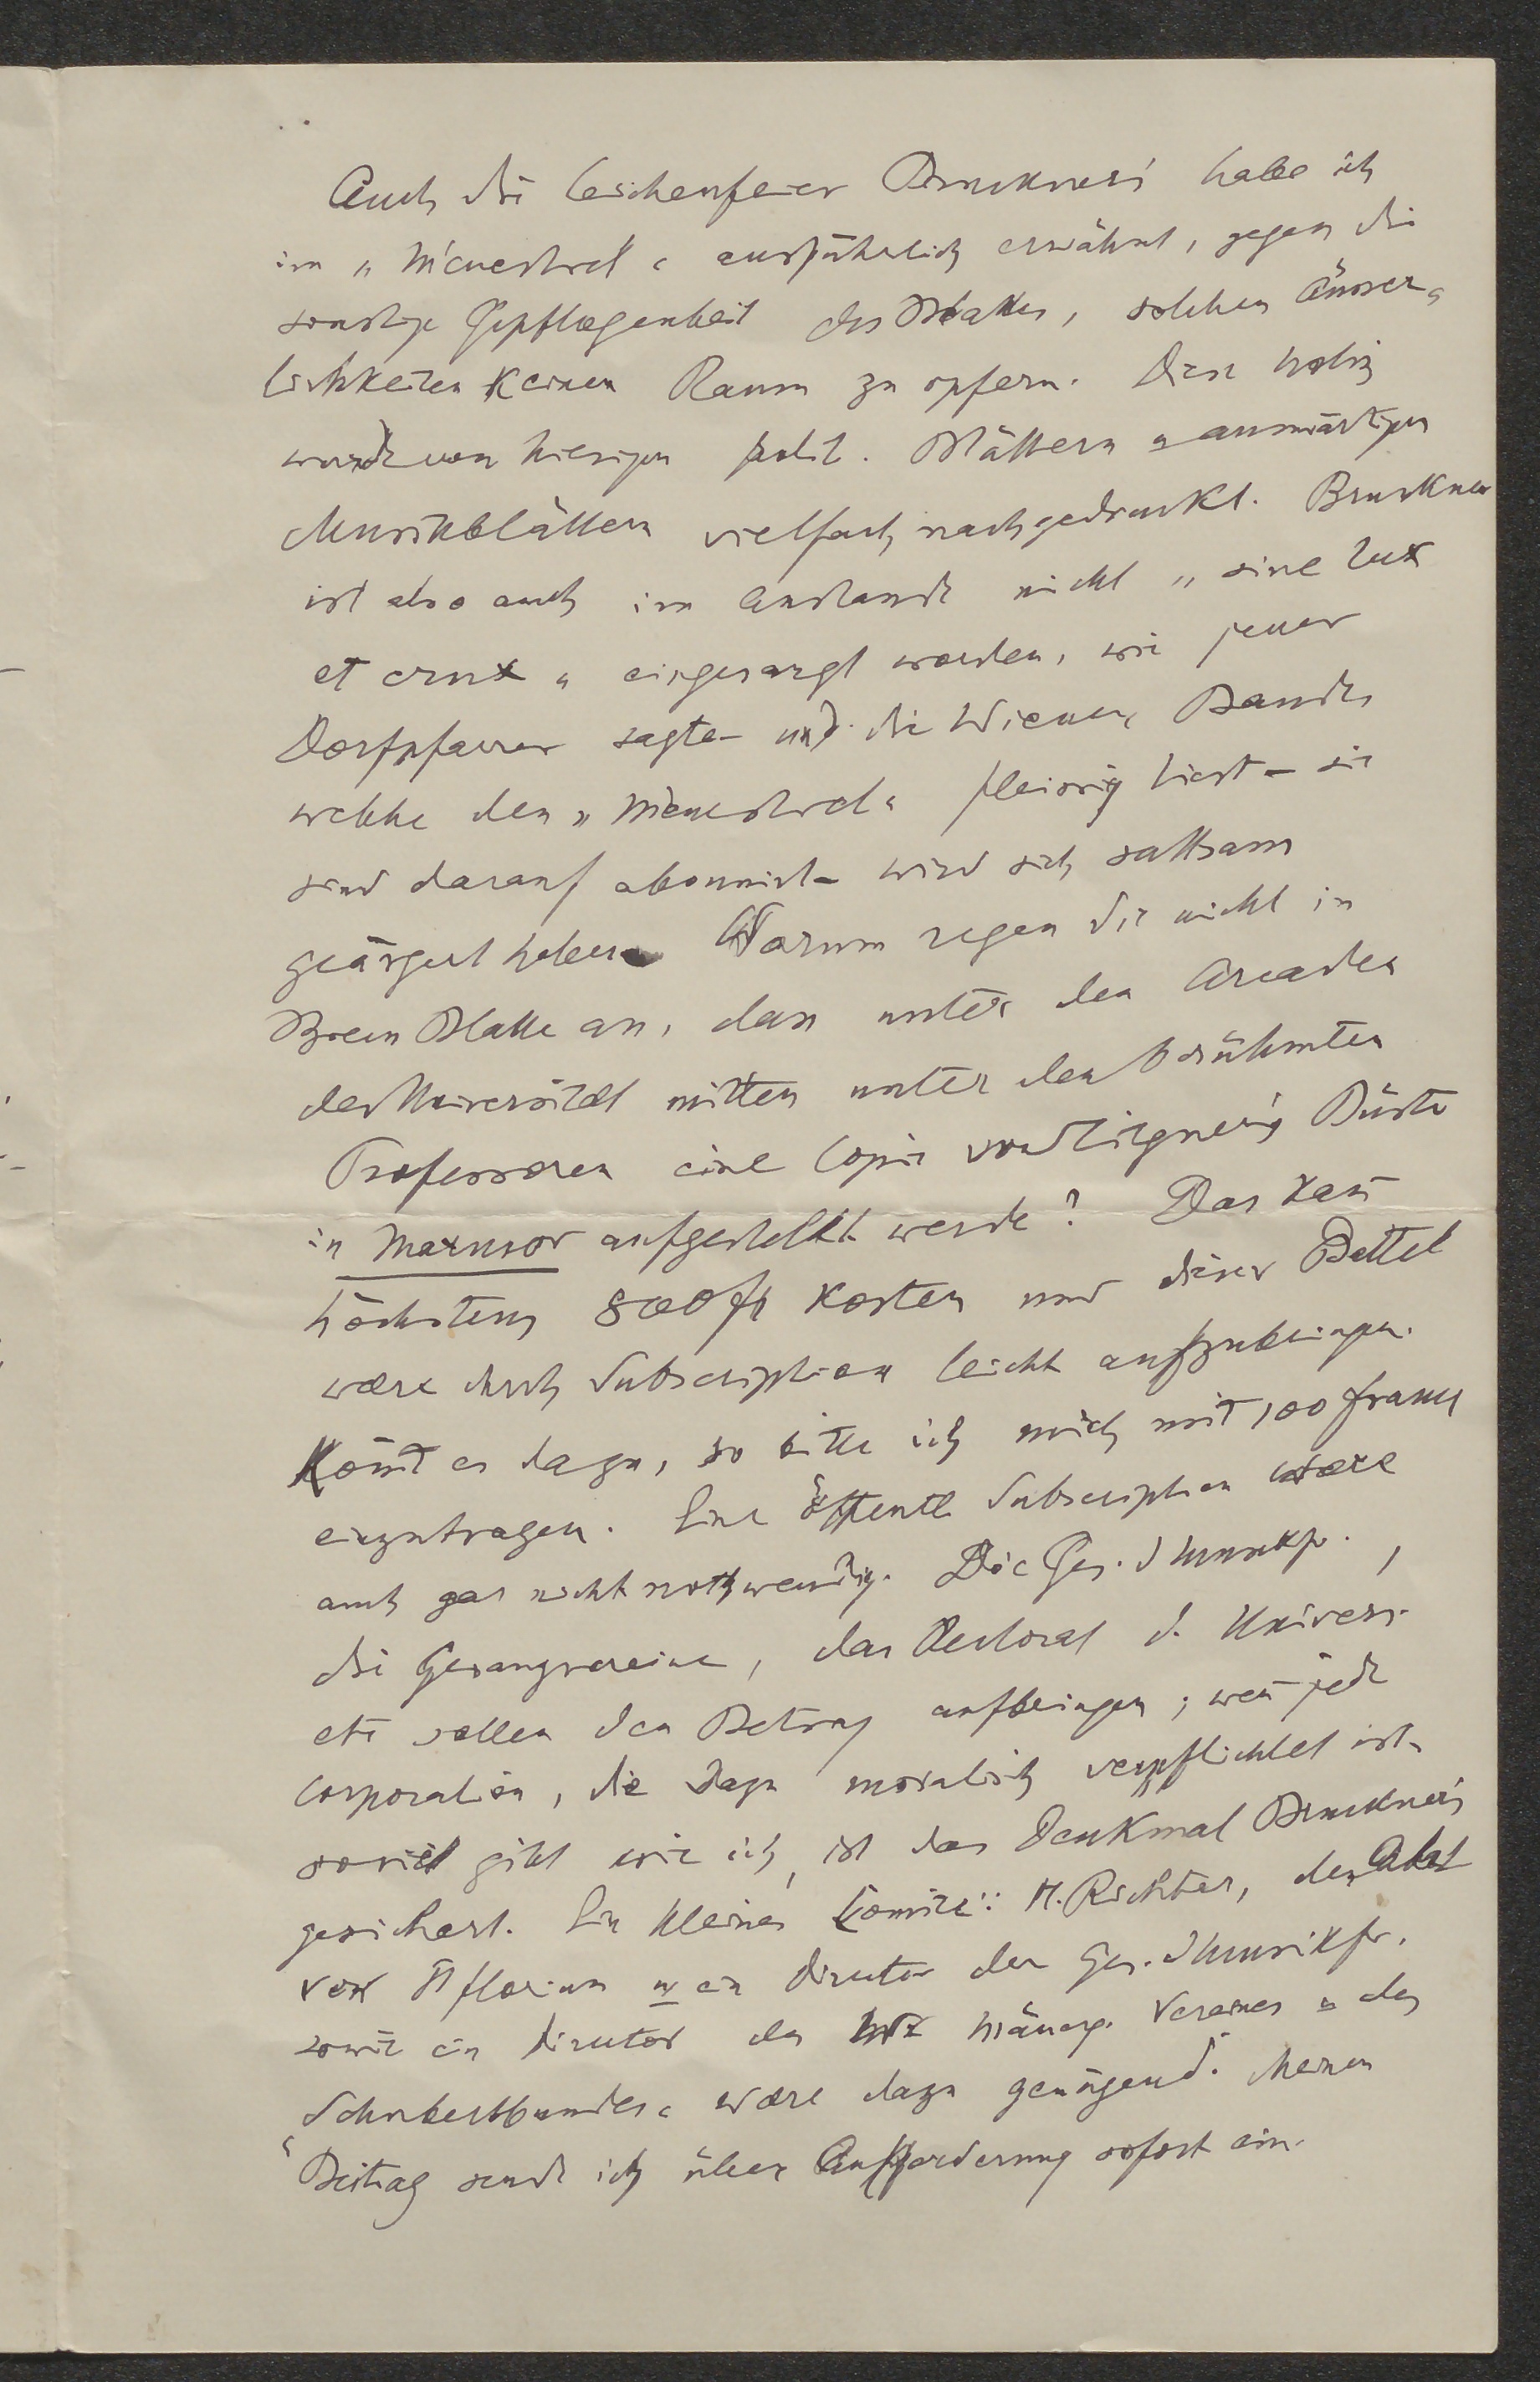 Auch die Leichenfeier Bruckner's habe ich
im „Ménestrel" ausführlich erwähnt, gegen die
sonstige Gepflogenheit des Blattes, solchen Äusser=
lichkeiten keinen Raum zu opfern. Diese Notiz
wurde von hiesigen polit. Blättern u auswärtigen
Musikblättern vielfach nachgedruckt. Bruckner
ist also auch im Auslande nicht „sine lux
et crux" eingesargt worden, wie jener
Dorfpfarrer sagte – und die Wiener Bande,
welche den „Ménestrel" fleissig liest – sie
sind darauf abonnirt – wird sich sattsam
geärgert haben. Warum regen Sie nicht in
Ihrem Blatte an, dass unter den Arcaden
der Universität mitten unter den berühmten
Professoren eine Copie von Tilgner's Büste
in Marmor aufgestellt werde? Das kan̄
höchstens 800 fl kosten und dieser Bettel
wäre durch Subscription leicht aufzubringen.
Kom̄t es dazu, so bitte ich mich mit 100 francs
einzutragen. Eine öffentl Subscription wäre
auch gar nicht nothwendig. Die Ges. d Musikfr.,
die Gesangvereine, das Rectorat d. Univers.
etc sollen den Betrag aufbringen; wen̄ jede
Corporation, die dazu moralisch verpflichtet ist,
soviel gibt wie ich, ist das Denkmal Bruckner's
gesichert. Ein kleines Comité: H. Richter, der Abt
von St florian u ein Director der Ges. d Musikfr.
sowie ein Director des Män̄erg. Vereines u des
„Schubertbundes" wäre dazu genügend. Meinen
Beitrag sende ich über Aufforderung sofort ein.